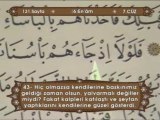 131.Sayfa 6.En'am 7.CÜZ
فَأَخَذْنَاهُمْ بِالْبَأْسَاءِ
فَلَوْلَا إِذْ جَاءَهُمْ بَأْسُنَا
43- Hiç olmazsa kendilerine baskınımız
geldiği zaman olsun, yalvarmalı değiller
miydi? Fakat kalpleri katılaştı ve şeytan
yaptıklarını kendilerine güzel gösterdi.